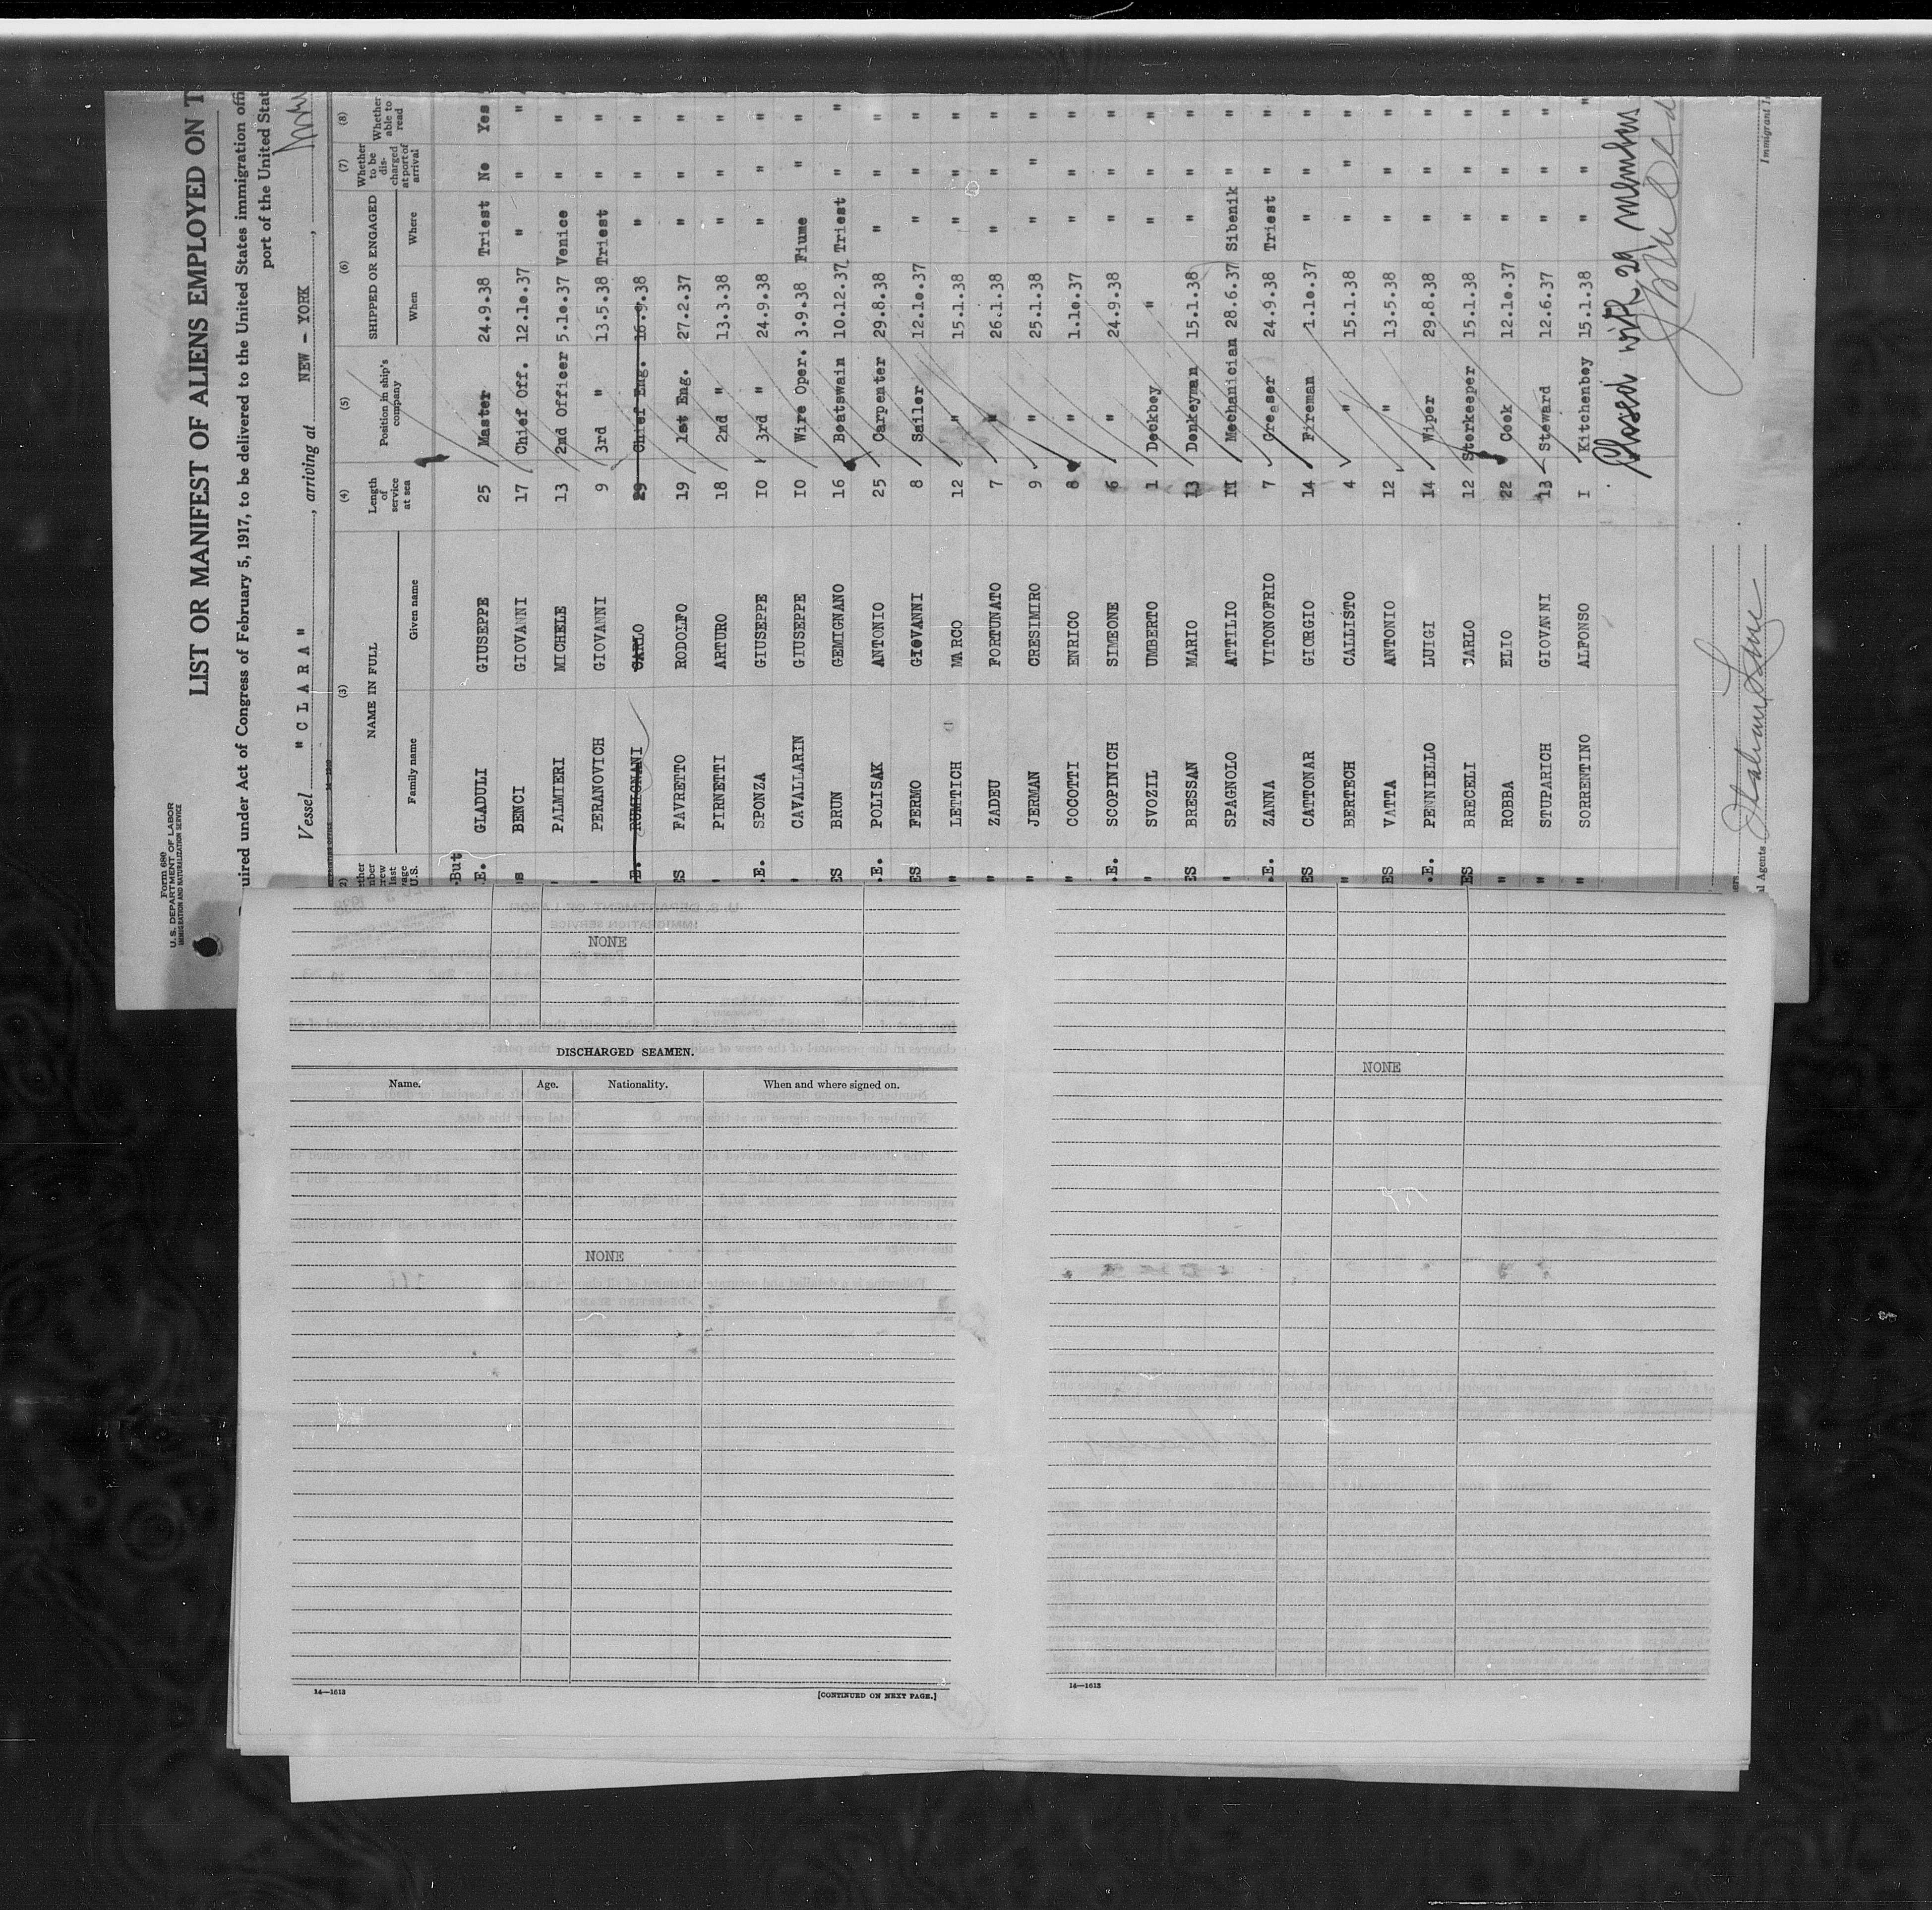 Form 680
U. S. DEPARTMENT OF LABOR
IMMIGRATION AND NATURALIZATION SERVICE
LIST OR MANIFEST OF ALIENS EMPLOYED ON T
uired under Act of Congress of February 5, 1917, to be delivered to the United States immigration offi
port of the United Stat
Vessel " C L A R A " , arriving at NEW - YORK ,
(3) (4) (5) (6) (7) (8)
NAME IN FULL Length of service at sea Position in ship's company SHIPPED OR ENGAGED Whether to be discharged at port of arrival Whether able to read
Family name Given name When Where
.But
.E. GLADULI GIUSEPPE 25 Master 24.9.38 Triest No Yes
S BENCI GIOVANNI 17 Chief Off. 12.1o.37 " " "
" PALMIERI MICHELE 13 2nd Officer 5.1o.37 Venice " "
" PERANOVICH GIOVANNI 9 3rd " 13.5.38 Triest " "
.E. RUMIGNANI CARLO 29 Chief Eng. 16.9.38 " " "
ES FAVRETTO RODOLFO 19 1st Eng. 27.2.37 " " "
" PIRNETTI ARTURO 18 2nd " 13.3.38 " " "
.E. SPONZA GIUSEPPE IO 3rd " 24.9.38 " " "
" CAVALLARIN GIUSEPPE IO Wire Oper. 3.9.38 Fiume " "
ES BRUN GEMIGNANO 16 Boatswain 10.12.37 Triest " "
.E. POLISAK ANTONIO 25 Carpenter 29.8.38 " " "
ES FERMO GIOVANNI 8 Sailor 12.1o.37 " " "
" LETTICH MARCO 12 " 15.1.38 " " "
" ZADEU FORTUNATO 7 " 26.1.38 " " "
" JERMAN CRESIMIRO 9 " 25.1.38 " " "
" COCOTTI ENRICO 8 " 1.1o.37 " " "
.E. SCOPINICH SIMEONE 6 " 24.9.38 " " "
" SVOZIL UMBERTO 1 Deckboy " " " "
ES BRESSAN MARIO 13 Donkeyman 15.1.38 " " "
" SPAGNOLO ATTILIO 11 Mechanician 28.6.37 Sibenik " "
.E. ZANNA VITONOFRIO 7 Greaser 24.9.38 Triest " "
ES CATTONAR GIORGIO 14 Fireman 1.1o.37 " " "
" BERTECH CALLISTO 4 " 15.1.38 " " "
ES VATTA ANTONIO 12 " 13.5.38 " " "
.E. PENNIELLO LUIGI 14 Wiper 29.8.38 " " "
ES BRECELI CARLO 12 Storkeeper 15.1.38 " " "
" ROBBA ELIO 22 Cook 12.1o.37 " " "
" STUPARICH GIOVANNI 13 Steward 12.6.37 " " "
" SORRENTINO ALFONSO I Kitchenboy 15.1.38 " " "
Closed with 29 members
l Agents
Immigrant I
NONE
DISCHARGED SEAMEN.
Name. Age. Nationality. When and where signed on.
NONE
14—1613 [CONTINUED ON NEXT PAGE.]
NONE
14—1613